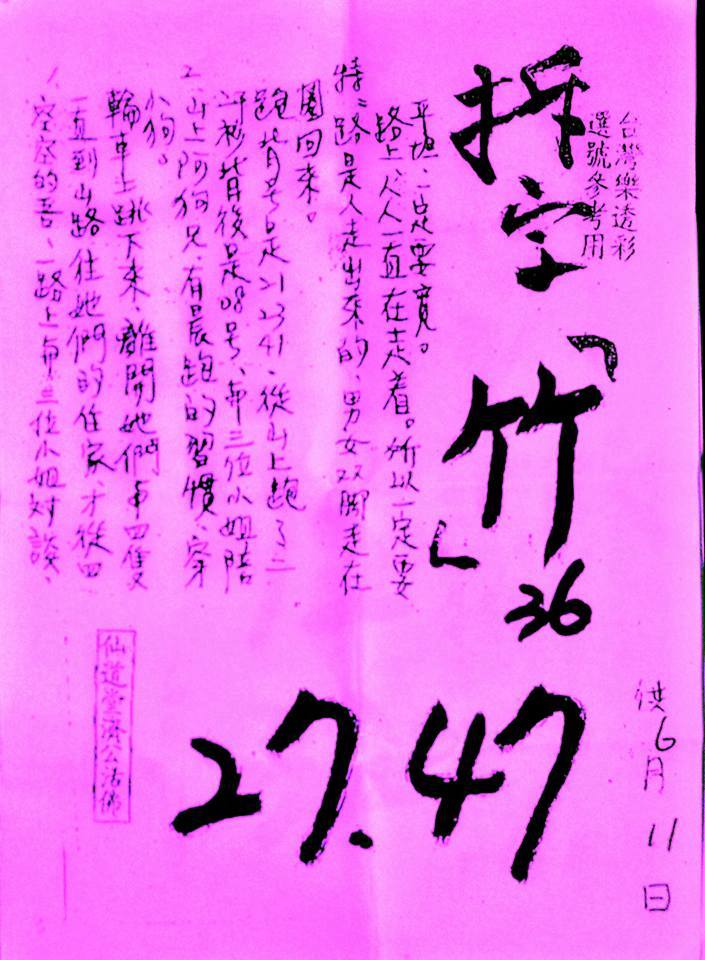 台灣樂透彩
選號參考用
拆字「竹」
36
27.47
供6月11日
1、空空的吾、一路上和三位小姐対談、
一直到山路往她們的住家、才從四
輪車上跳下來、離開她們和四隻
小狗。
2、山上阿狗兄、有晨跑的習慣、穿
汗衫背後是08号、和三位小姐陪
跑背号是21 23 41、從山上跑了二
圈回來。
特:路是人走出來的、男女双脚走在
路上、人人一直在走着。所以一定要
平坦、一定要寬。
仙道堂濟公活佛